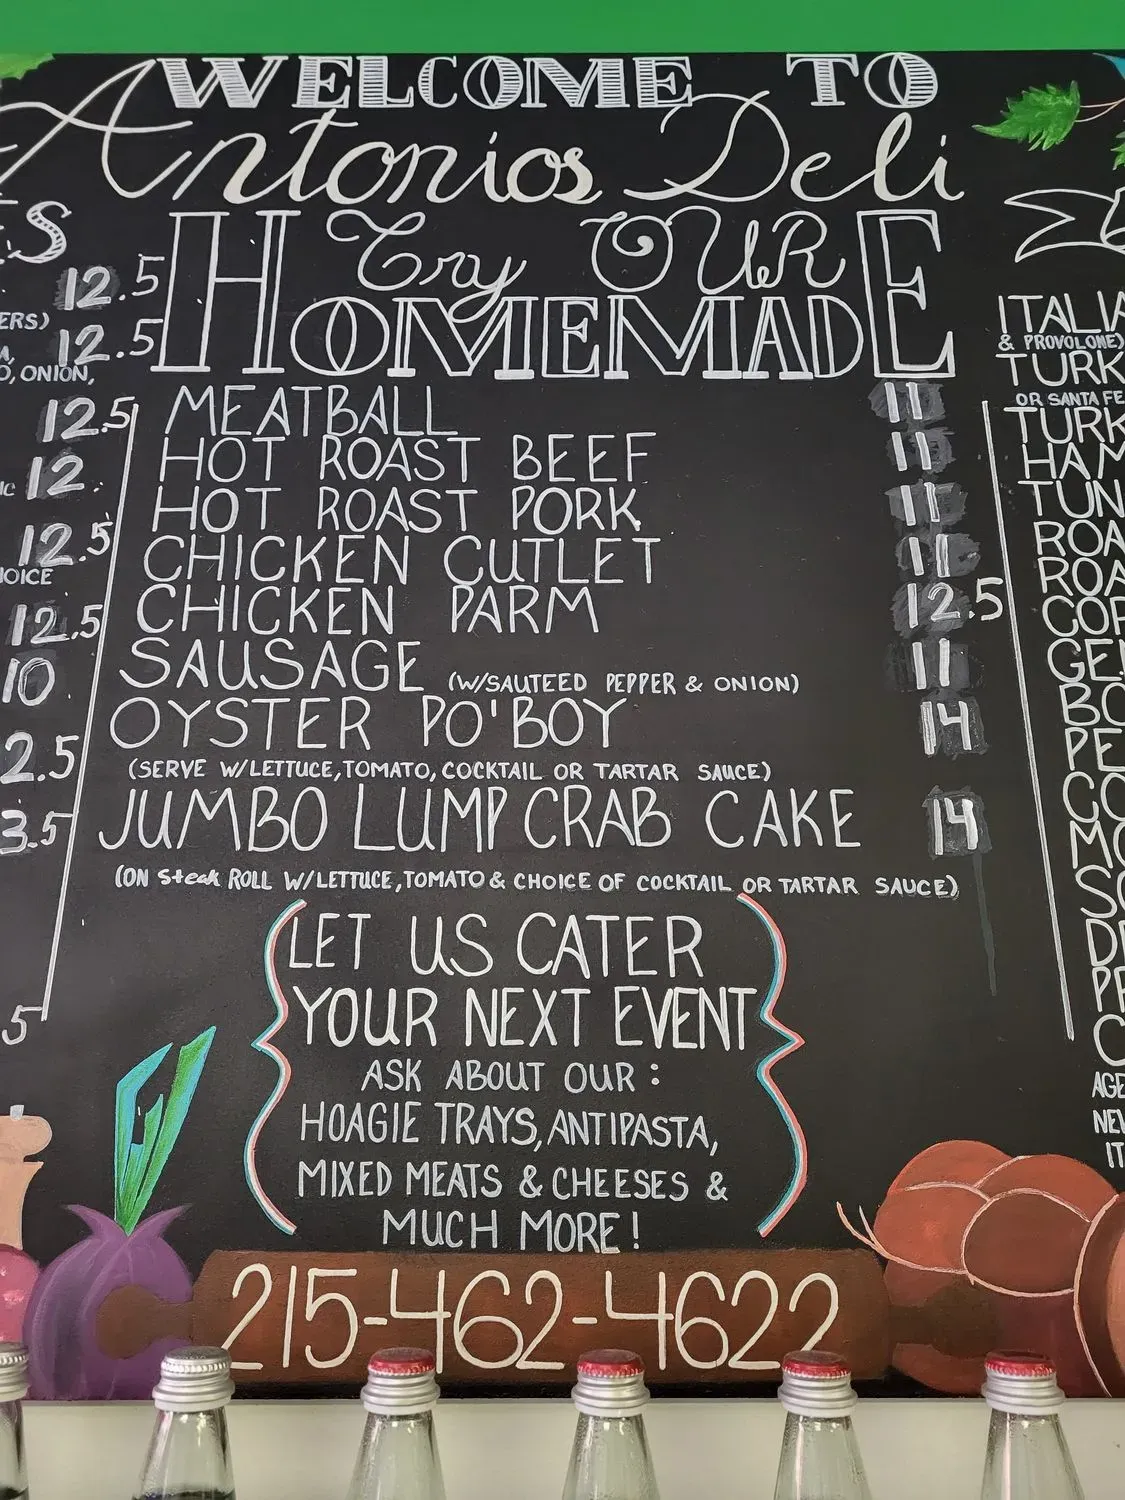 WELCOME TO
Antonios Deli
Try OUR
HOMEMADE
MEATBALL 11
HOT ROAST BEEF 11
HOT ROAST PORK 11
CHICKEN CUTLET 11
CHICKEN PARM 12.5
SAUSAGE (W/SAUTEED PEPPER & ONION) 11
OYSTER PO'BOY 14
(SERVE W/LETTUCE, TOMATO, COCKTAIL OR TARTAR SAUCE)
JUMBO LUMP CRAB CAKE 14
(ON Steak ROLL W/LETTUCE, TOMATO & CHOICE OF COCKTAIL OR TARTAR SAUCE)
LET US CATER
YOUR NEXT EVENT
ASK ABOUT OUR:
HOAGIE TRAYS, ANTIPASTA,
MIXED MEATS & CHEESES &
MUCH MORE!
215-462-4622
12.5
12.5
ONION,
12.5
12
12.5
12.5
10
2.5
3.5
5
& PROVOLONE)
OR SANTA FE
HAM